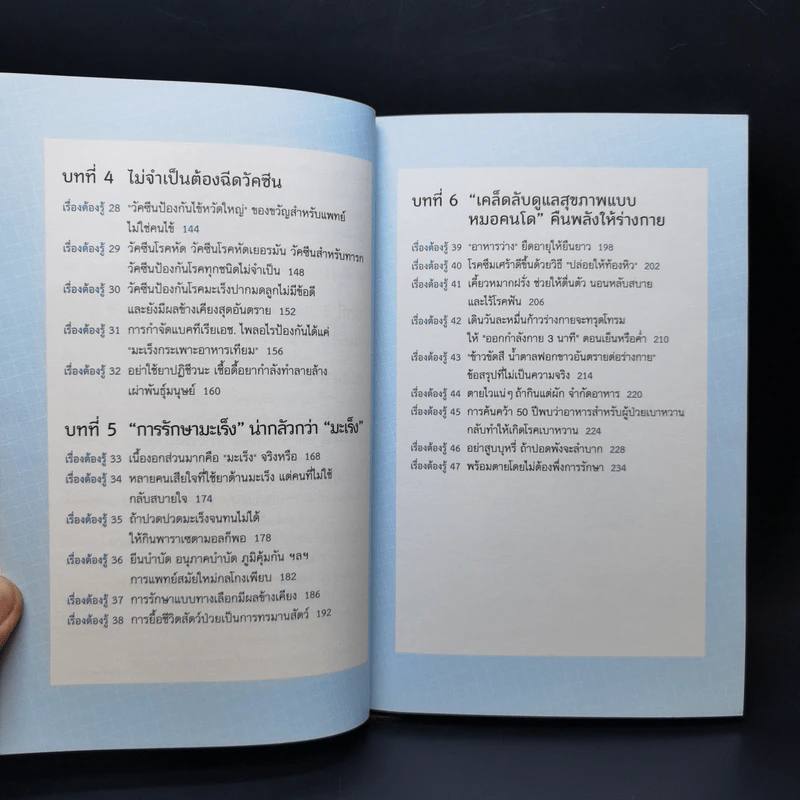 บทที่ 4 ไม่จำเป็นต้องฉีดวัคซีน
เรื่องต้องรู้ 28 "วัคซีนป้องกันไข้หวัดใหญ่" ของขวัญสำหรับแพทย์
ไม่ใช่คนไข้ 144
เรื่องต้องรู้ 29 วัคซีนโรคหัด วัคซีนโรคหัดเยอรมัน วัคซีนสำหรับทารก
วัคซีนป้องกันโรคทุกชนิดไม่จำเป็น 148
เรื่องต้องรู้ 30 วัคซีนป้องกันโรคมะเร็งปากมดลูกไม่มีข้อดี
และยังมีผลข้างเคียงสุดอันตราย 152
เรื่องต้องรู้ 31 การกำจัดแบคทีเรียเอช. ไพลอไรป้องกันได้แค่
"มะเร็งกระเพาะอาหารเทียม" 156
เรื่องต้องรู้ 32 อย่าใช้ยาปฏิชีวนะ เชื้อดื้อยากำลังทำลายล้าง
เผ่าพันธุ์มนุษย์ 160
บทที่ 5 "การรักษามะเร็ง" น่ากลัวกว่า "มะเร็ง"
เรื่องต้องรู้ 33 เนื้องอกส่วนมากคือ "มะเร็ง" จริงหรือ 168
เรื่องต้องรู้ 34 หลายคนเสียใจที่ใช้ยาต้านมะเร็ง แต่คนที่ไม่ใช้
กลับสบายใจ 174
เรื่องต้องรู้ 35 ถ้าปวดปวดมะเร็งจนทนไม่ได้
ให้กินพาราเซตามอลก็พอ 178
เรื่องต้องรู้ 36 ยีนบำบัด อนุภาคบำบัด ภูมิคุ้มกัน ฯลฯ
การแพทย์สมัยใหม่กลโกงเพียบ 182
เรื่องต้องรู้ 37 การรักษาแบบทางเลือกมีผลข้างเคียง 186
เรื่องต้องรู้ 38 การยื้อชีวิตสัตว์ป่วยเป็นการทรมานสัตว์ 192
บทที่ 6 "เคล็ดลับดูแลสุขภาพแบบ
หมอคนโด" คืนพลังให้ร่างกาย
เรื่องต้องรู้ 39 "อาหารว่าง" ยืดอายุให้ยืนยาว 198
เรื่องต้องรู้ 40 โรคซึมเศร้าดีขึ้นด้วยวิธี "ปล่อยให้ท้องหิว" 202
เรื่องต้องรู้ 41 เคี้ยวหมากฝรั่ง ช่วยให้ตื่นตัว นอนหลับสบาย
และไร้โรคฟัน 206
เรื่องต้องรู้ 42 เดินวันละหมื่นก้าวร่างกายจะทรุดโทรม
ให้ "ออกกำลังกาย 3 นาที" ตอนเย็นหรือค่ำ 210
เรื่องต้องรู้ 43 "ข้าวขัดสี น้ำตาลฟอกขาวอันตรายต่อร่างกาย"
ข้อสรุปที่ไม่เป็นความจริง 214
เรื่องต้องรู้ 44 ตายไวแน่ๆ ถ้ากินแต่ผัก จำกัดอาหาร 220
เรื่องต้องรู้ 45 การค้นคว้า 50 ปีพบว่าอาหารสำหรับผู้ป่วยเบาหวาน
กลับทำให้เกิดโรคเบาหวาน 224
เรื่องต้องรู้ 46 อย่าสูบบุหรี่ ถ้าปอดพังจะลำบาก 228
เรื่องต้องรู้ 47 พร้อมตายโดยไม่ต้องพึ่งการรักษา 234